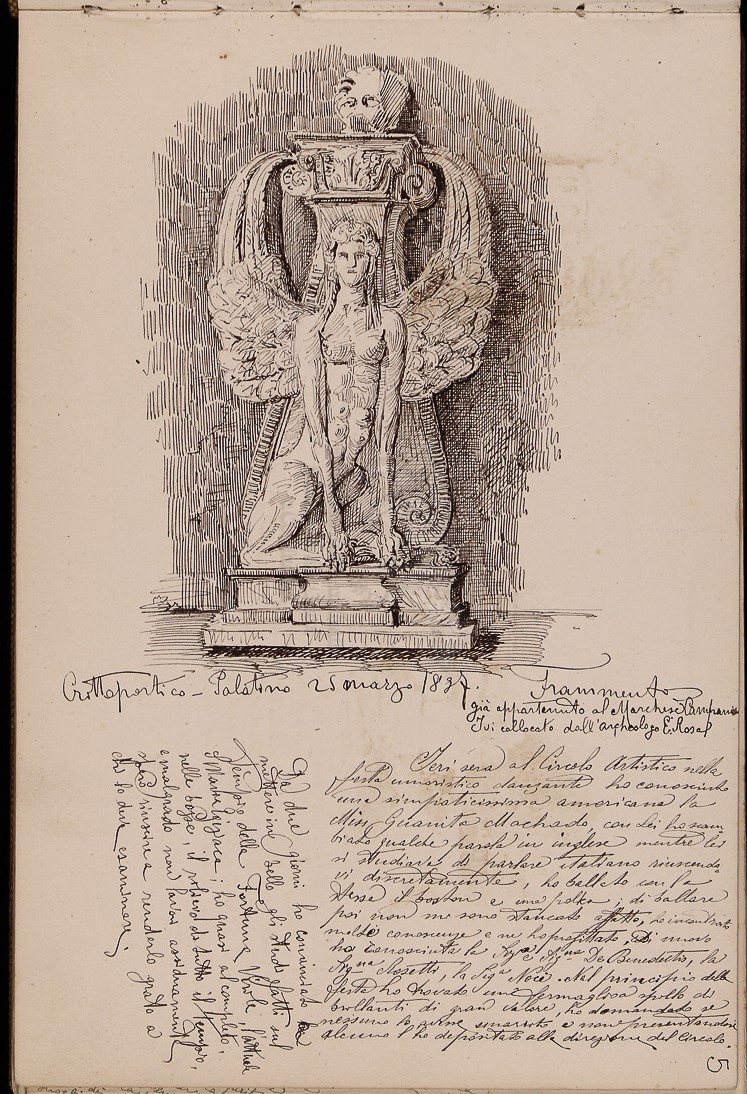 Crittoportico - Palatino 25 marzo 1897.
Frammento
già appartenuto al Marchese Campana
Ivi collocato dall'archeologo E. Rosa
Ieri sera al Circolo Artistico nella
festa umoristico danzante ho conosciuto
una simpaticissima americana la
Miss Guanita Machado con Lei ho scam
biato qualche parola in inglese mentre lei
si studiava di parlare italiano riuscendo
vi discretamente, ho ballato con la
stessa il boston e una polka; di ballare
poi non mi sono stancato affatto, ho incontrato
molte conoscenze e ne ho profittato, Di nuovo
ho conosciuta la Sig.na De Benedettis, la
Sig.na Rossetti, la Sig.na Noce. Nel principio della
festa ho trovato un fermaglio a spillo di
brillanti di gran valore, ho domandato se
nessuno lo aveva smarrito e non presentandosi
alcuno l'ho depositato alla direzione del Circolo.
Da due giorni ho cominciato
mettere in bello gli studi fatti sul
Tempio della Fortuna Virile, l'attuale
S. Maria Egiziaca; ho quasi al completo,
nelle bozze, il rilievo di tutto il Tempio,
emalgrado non lavori assiduamente
spero riuscire a renderlo grato a
chi lo deve esaminare.
5